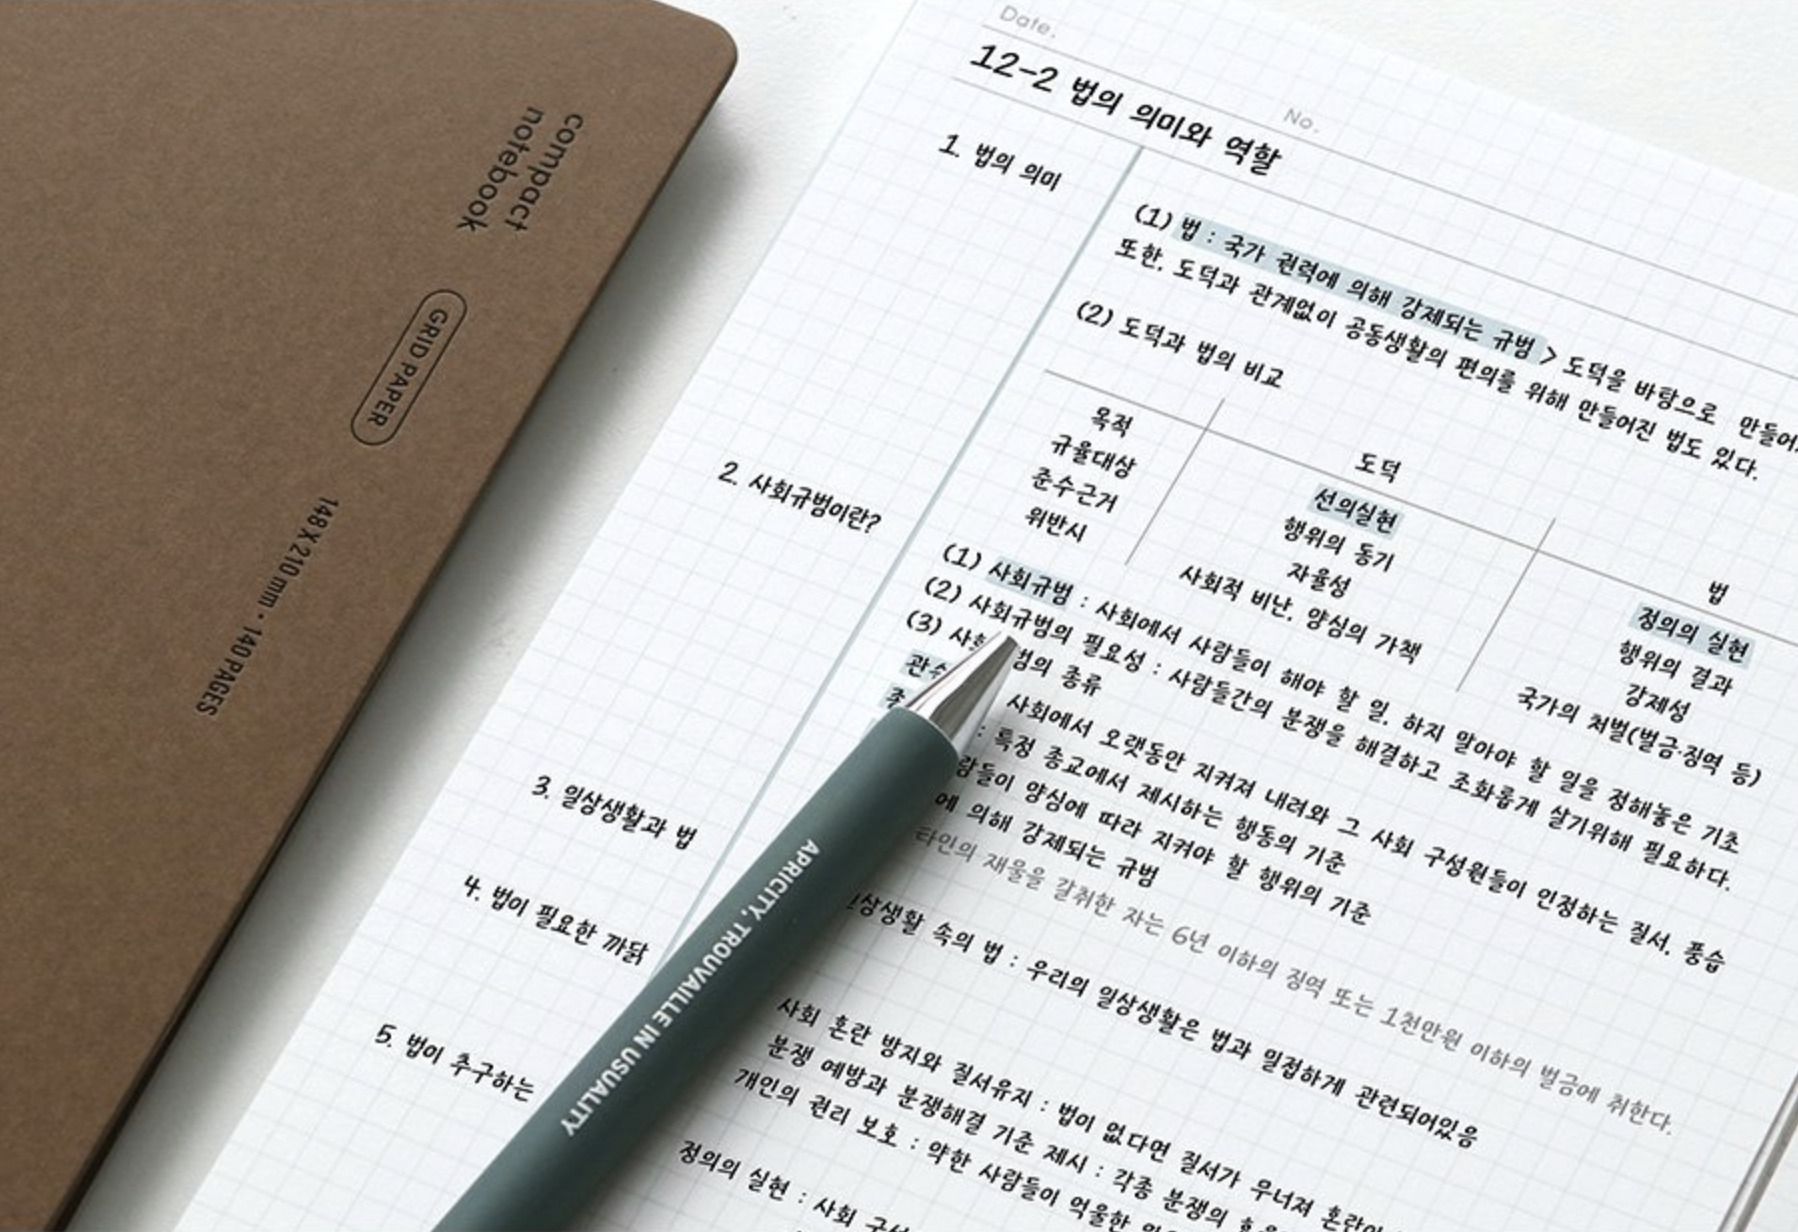 compact
notebook
GRID PAPER
148 X 210 mm · 140 PAGES
Date.
No.
12-2 법의 의미와 역할
1. 법의 의미
(1) 법 : 국가 권력에 의해 강제되는 규범 > 도덕을 바탕으로 만들어
또한, 도덕과 관계없이 공동생활의 편의를 위해 만들어진 법도 있다.
(2) 도덕과 법의 비교
도덕 법
목적 선의실현 정의의 실현
규율대상 행위의 동기 행위의 결과
준수근거 자율성 강제성
위반시 사회적 비난, 양심의 가책 국가의 처벌(벌금·징역 등)
2. 사회규범이란?
(1) 사회규범 : 사회에서 사람들이 해야 할 일, 하지 말아야 할 일을 정해놓은 기초
(2) 사회규범의 필요성 : 사람들간의 분쟁을 해결하고 조화롭게 살기위해 필요하다.
(3) 사 범의 종류
관 사회에서 오랫동안 지켜져 내려와 그 사회 구성원들이 인정하는 질서, 풍습
: 특정 종교에서 제시하는 행동의 기준
람들이 양심에 따라 지켜야 할 행위의 기준
에 의해 강제되는 규범
타인의 재물을 갈취한 자는 6년 이하의 징역 또는 1천만원 이하의 벌금에 취한다.
3. 일상생활과 법
상생활 속의 법 : 우리의 일상생활은 법과 밀접하게 관련되어있음
4. 법이 필요한 까닭
사회 혼란 방지와 질서유지 : 법이 없다면 질서가 무너져 혼란이
분쟁 예방과 분쟁해결 기준 제시 : 각종 분쟁의
개인의 권리 보호 : 약한 사람들이 억울한
5. 법이 추구하는
정의의 실현 : 사회
APRICITY, TROUVAILLE IN USUALITY